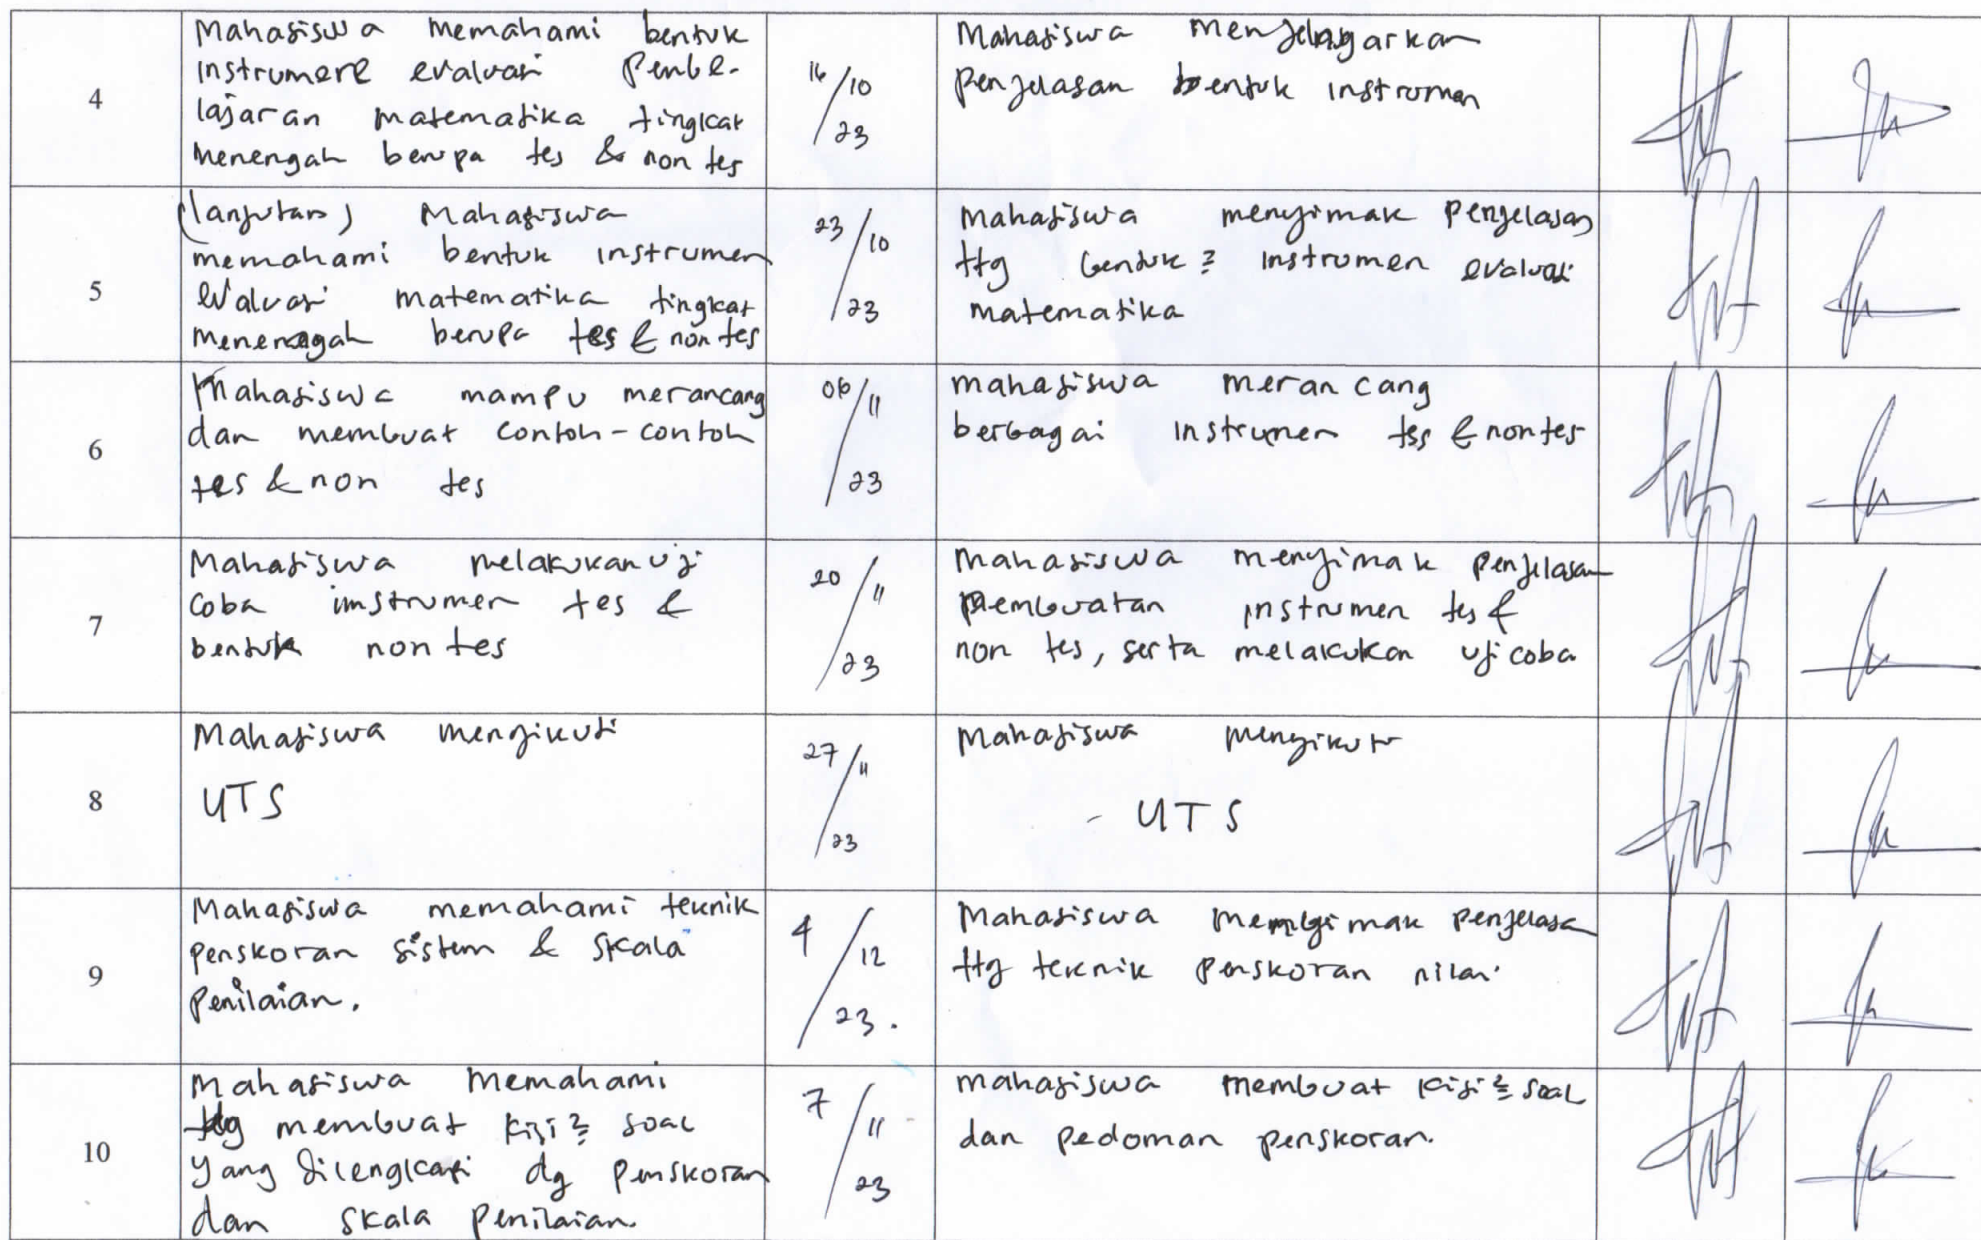 4
Mahasiswa memahami bentuk
instrumere evaluasi pembe-
lajaran matematika tingkat
menengah berupa tes & non tes
16/10/23
Mahasiswa
penjelasan bentuk instrumen
5
(lanjutan) Mahasiswa
memahami bentuk instrumen
evaluasi matematika tingkat
menengah berupa tes & non tes
23/10/23
Mahasiswa menyimak penjelasan
ttg bentuk2 instrumen evaluasi
matematika
6
Mahasiswa mampu merancang
dan membuat contoh-contoh
tes & non tes
06/11/23
mahasiswa merancang
berbagai instrumen tes & non tes
7
Mahasiswa melakukan uji
coba imstrumen tes &
bentuk non tes
20/11/23
Mahasiswa menyimak penjelasan
pembuatan instrumen tes &
non tes, serta melakukan uji coba
8
Mahasiswa mengikuti
UTS
27/11/23
Mahasiswa mengikuti
- UTS
9
Mahasiswa memahami teknik
penskoran sistem & skala
penilaian.
4/12/23.
Mahasiswa menyimak penjelasa
ttg teknik penskoran nilai
10
Mahasiswa memahami
ttg membuat kisi2 soal
yang dilengkapi dg penskoran
dan skala penilaian.
7/11/23
mahasiswa membuat kisi2 soal
dan pedoman penskoran.